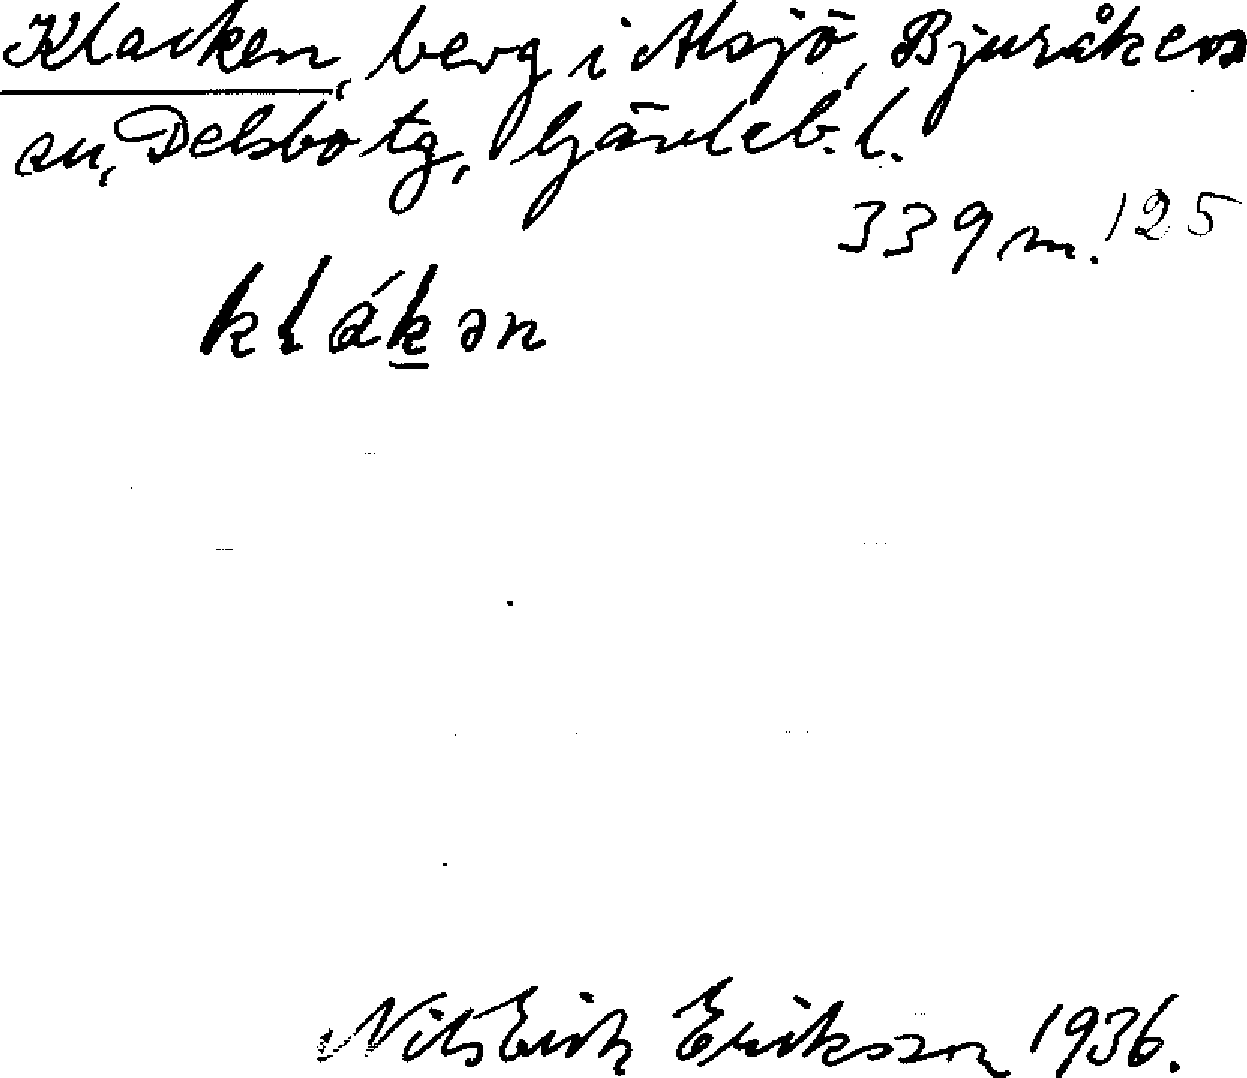 Klacken, berg i Alsjö, Bjuråkers
sn, Delsbo tg, Gävleb. l.
339 m. 125
klákən
Nils Erik Eriksson 1936.